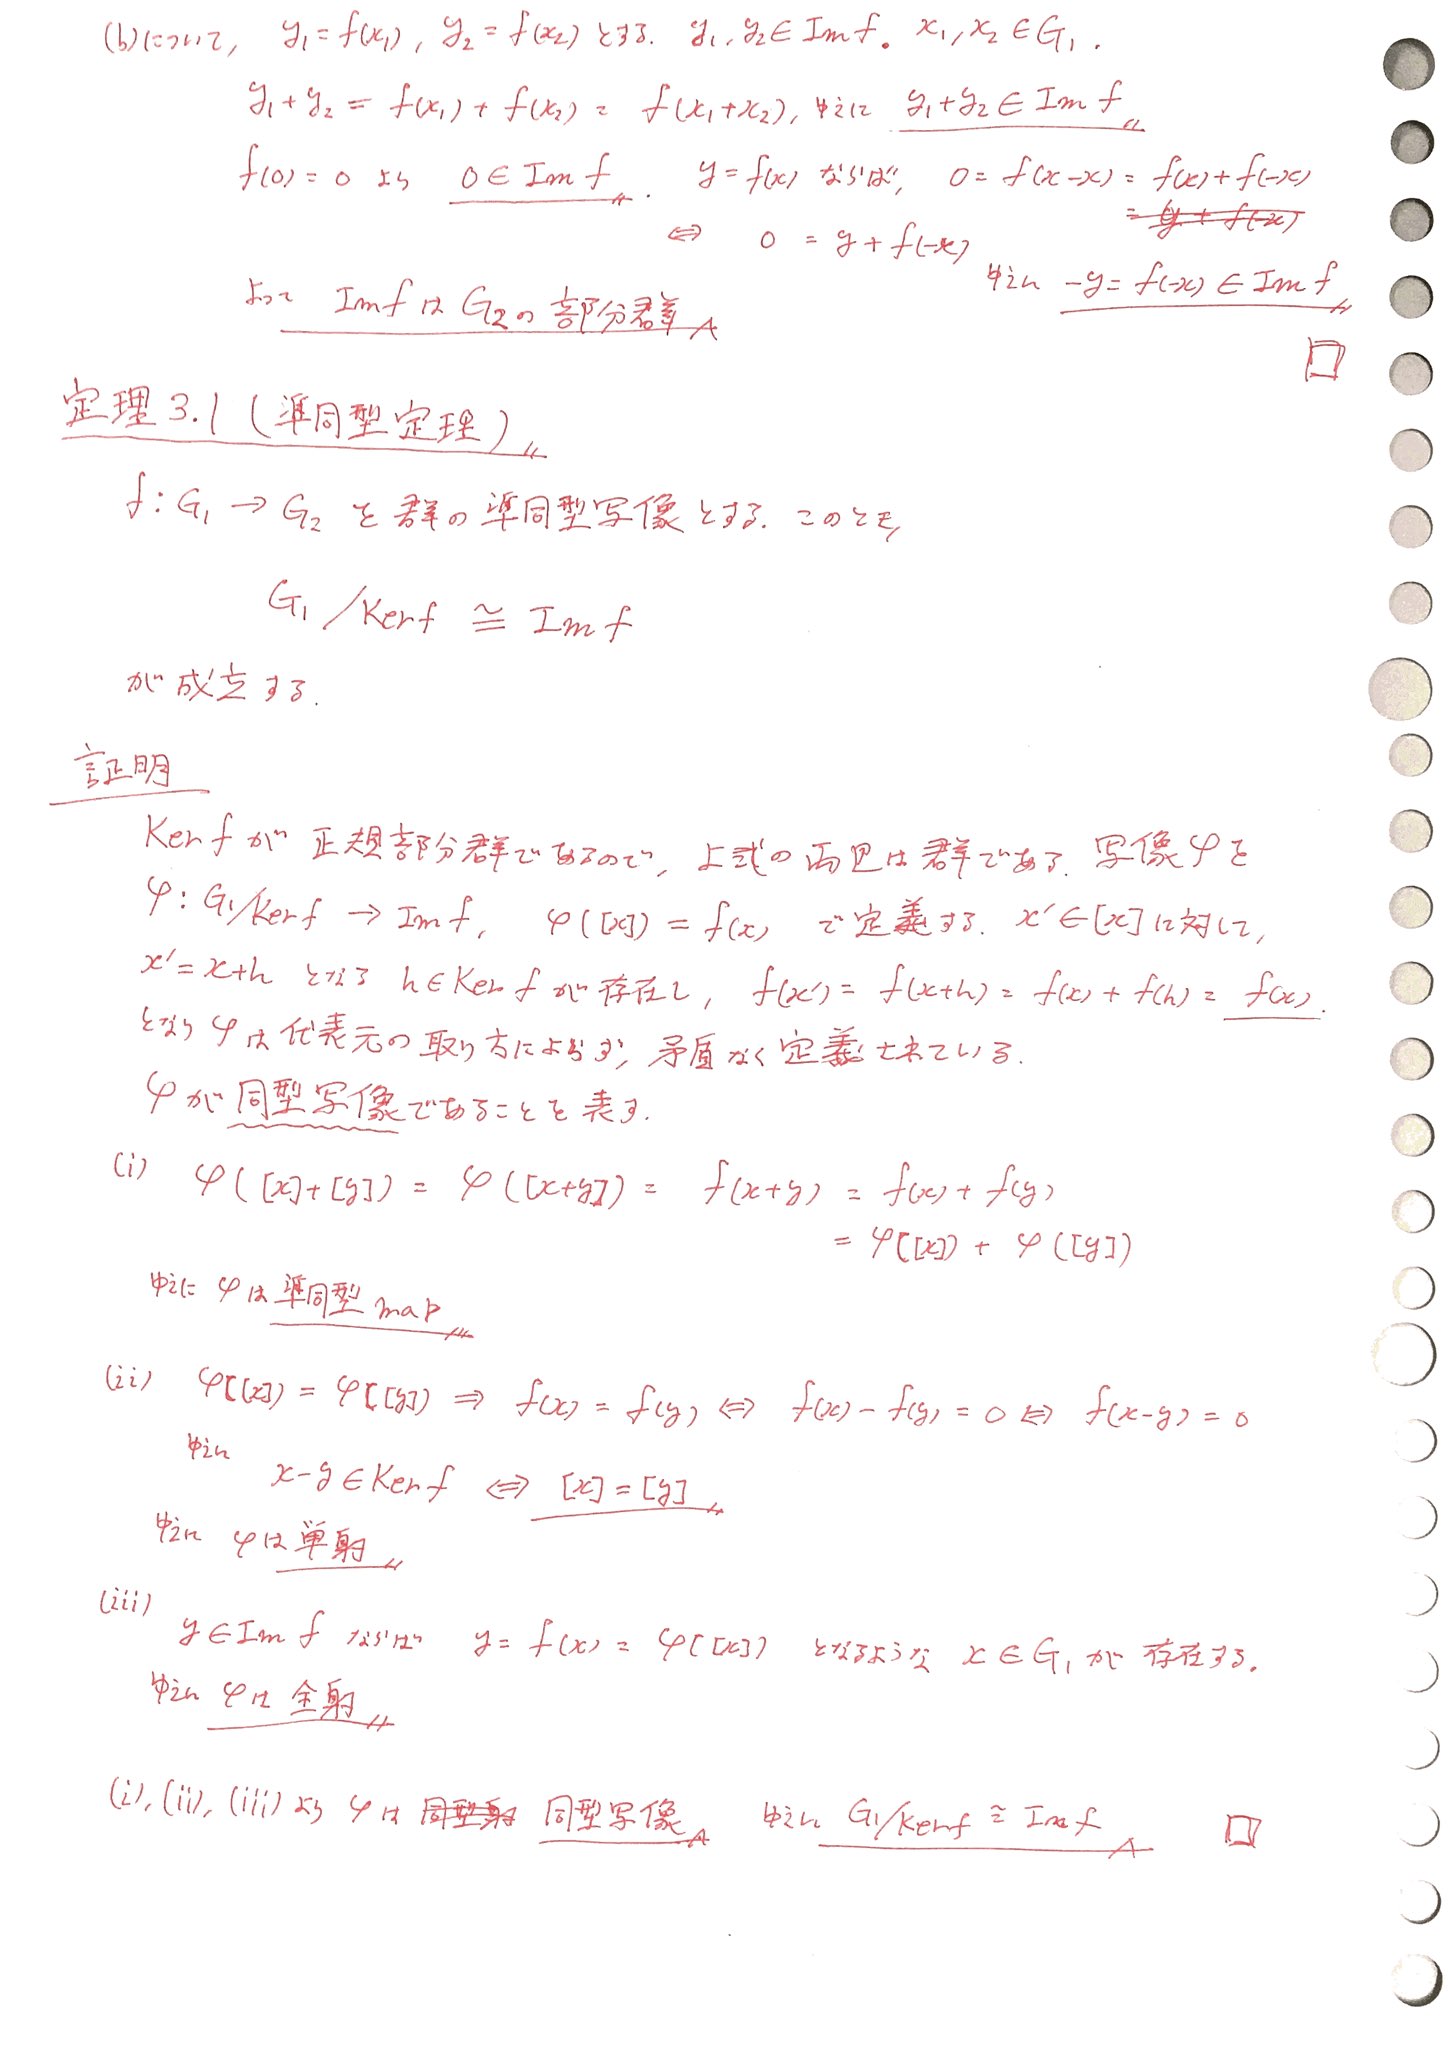 (b)について, y₁=f(x₁), y₂=f(x₂) とする. y₁, y₂∈Im f。 x₁, x₂∈G₁.
y₁+y₂ = f(x₁)+f(x₂) = f(x₁+x₂), ゆえに y₁+y₂∈Im f
f(0)=0 より 0∈Im f. y=f(x) ならば, 0=f(x-x)=f(x)+f(-x)
= y + f(-x)
⇔ 0 = y+f(-x)
ゆえに -y=f(-x)∈Im f
よって Im f は G₂の部分群
□
定理3.1 (準同型定理)
f: G₁→G₂ を群の準同型写像とする. このとき,
G₁/Ker f ≅ Im f
が成立する.
証明
Ker f が正規部分群であるので, 上式の両辺は群である. 写像φを
φ: G₁/Ker f → Im f, φ([x]) = f(x) で定義する. x'∈[x]に対して,
x'=x+h となる h∈Ker f が存在し, f(x')=f(x+h)=f(x)+f(h)=f(x).
となりφは代表元の取り方によらず, 矛盾なく定義されている.
φが同型写像であることを表す.
(i) φ([x]+[y]) = φ([x+y]) = f(x+y) = f(x)+f(y)
= φ([x]) + φ([y])
ゆえに φは準同型map
(ii) φ([x]) = φ([y]) ⇒ f(x)=f(y) ⇔ f(x)-f(y)=0 ⇔ f(x-y)=0
ゆえに
x-y∈Ker f ⇔ [x]=[y]
ゆえに φは単射
(iii)
y∈Im f ならば y=f(x)=φ([x]) となるような x∈G₁が存在する.
ゆえに φは全射
(i), (ii), (iii)より φは 同型射 同型写像 ゆえに G₁/Ker f ≅ Im f □